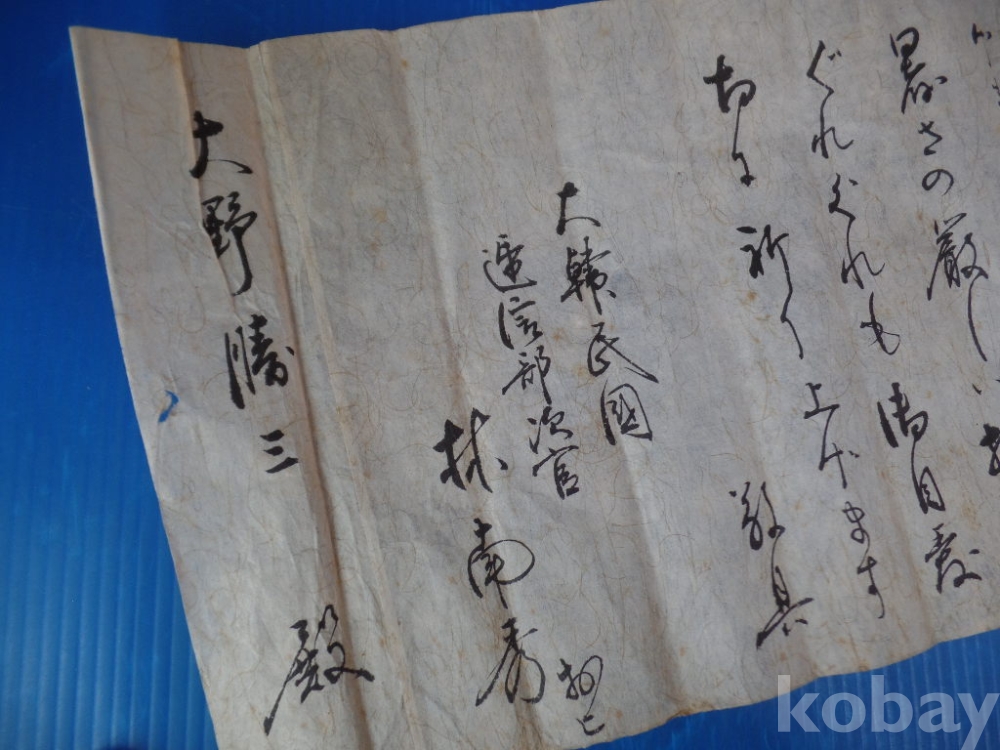 暑さの厳しい
ぐれぐれも御自愛
切に祈り上げます 敬具
大韓民國
逓信部次官
林南秀 拝上
大野勝三 殿
kobay